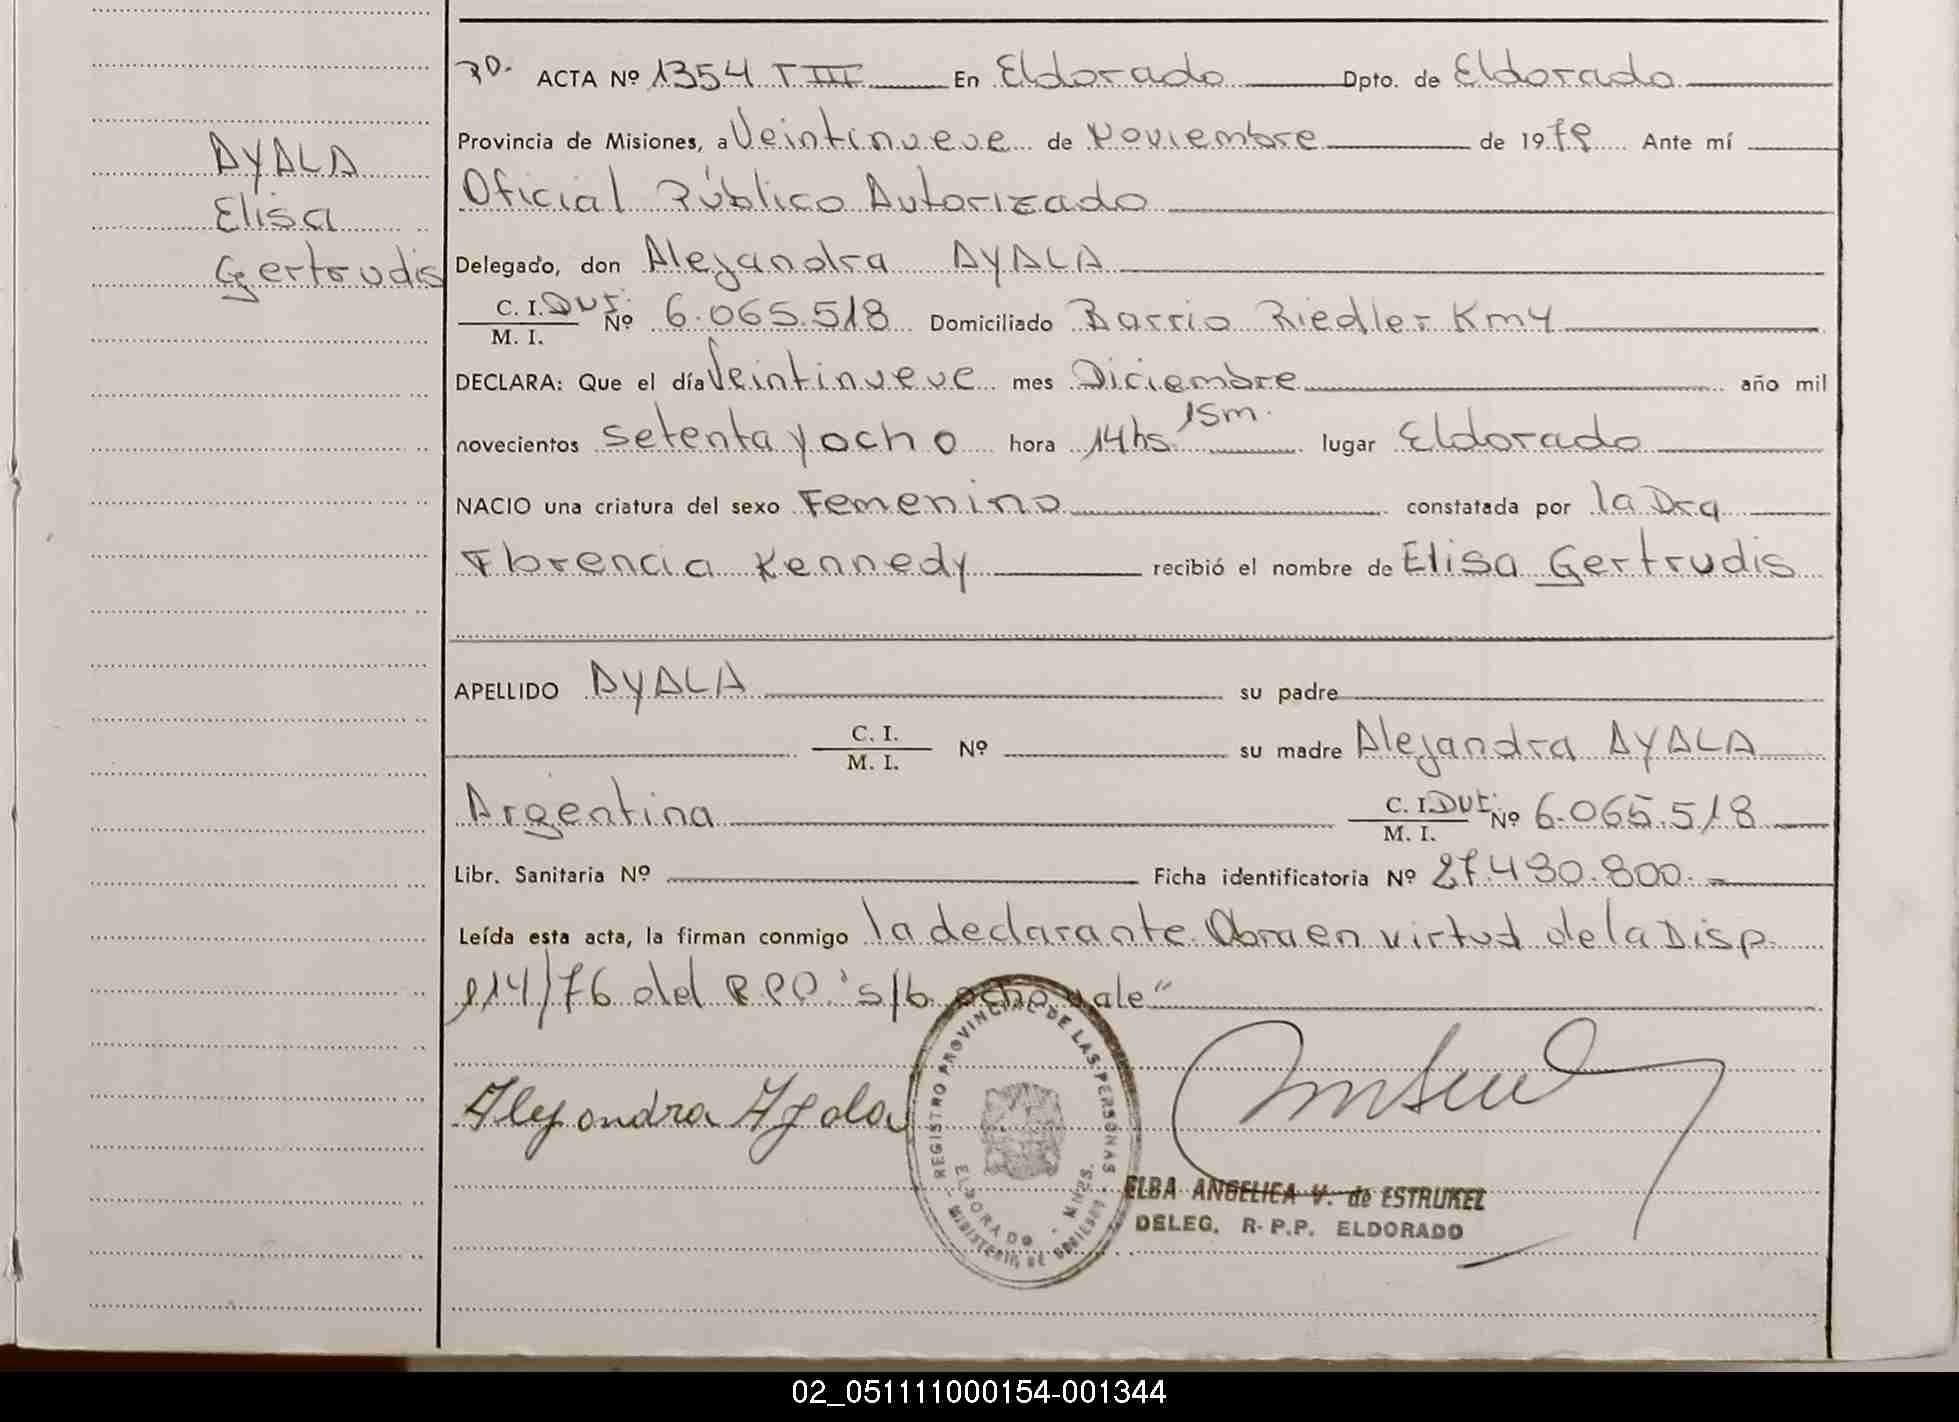 AYALA
Elisa
Gertrudis
ACTA Nº 1354 T III En Eldorado Dpto. de Eldorado
Provincia de Misiones, a Veintinueve de Noviembre de 1979 Ante mí
Oficial Público Autorizado
Delegado, don Alejandra AYALA
C. I. DNI. Nº 6.065.518 Domiciliado Barrio Riedler Km4
M. I.
DECLARA: Que el día Veintinueve mes Diciembre año mil
novecientos setenta y ocho hora 14hs. 15m. lugar Eldorado
NACIO una criatura del sexo Femenino constatada por la Dra
Florencia Kennedy recibió el nombre de Elisa Gertrudis
APELLIDO AYALA su padre
C. I.
M. I. Nº su madre Alejandra AYALA
Argentina C. I. DNI. Nº 6.065.518
M. I.
Libr. Sanitaria Nº Ficha identificatoria Nº 27.490.800.-
Leída esta acta, la firman conmigo la declarante. Obra en virtud de la Disp.
114/76 del R.P.P. "s/b. ocho vale"
Alejandra Ayala
REGISTRO PROVINCIAL DE LAS PERSONAS
ELDORADO - MNES.
MINISTERIO DE GOBIERNO
ELBA ANGELICA V. de ESTRUKEL
DELEG. R. P.P. ELDORADO
02_051111000154-001344